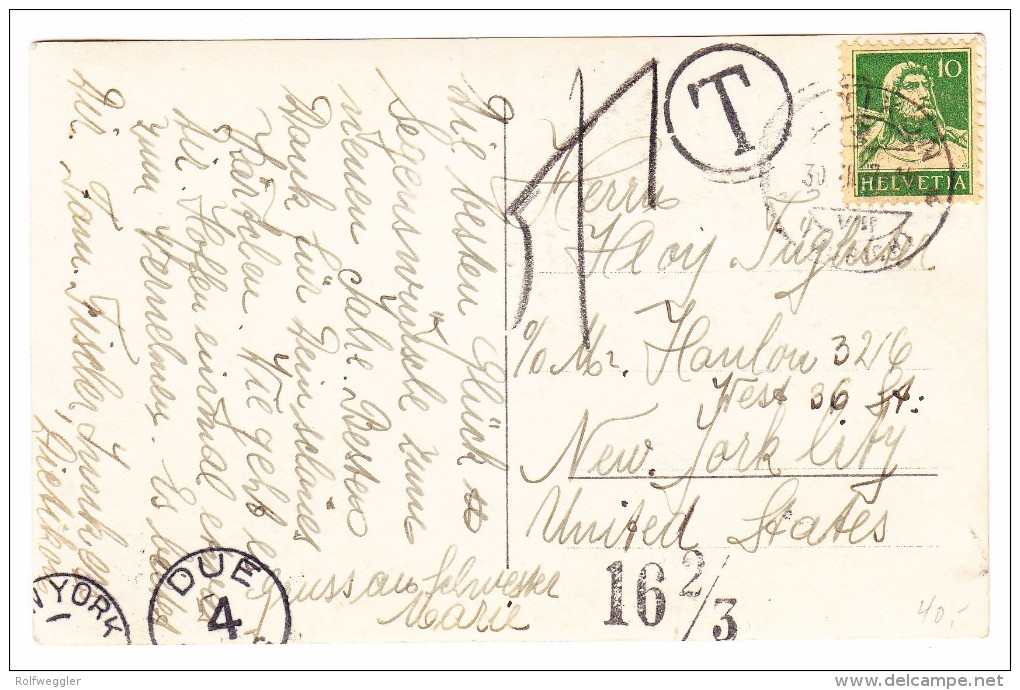 Die besten Glück &
Segenswünsche zum
neuen Jahre. Besten
Dank für Dein schönes
Kärtchen. Wie geht es
Dir. Hoffen einmal etwas
zum vernehmen. Es
Fam. Fischer
Dietikon
Gruss an Schwester
Marie
T
10
HELVETIA
30
VIII
Herrn
c/o Mr. Hanlon 3216
West 36 St.
New York City
United States
16 2/3
YORK
DUE
4
40.-
Rolfweggler
delcampe.net